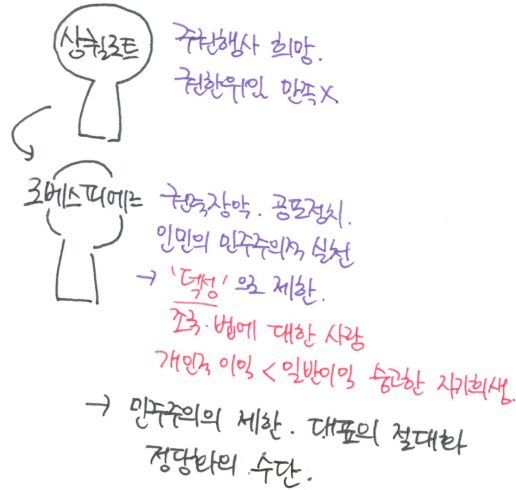 상퀼로트
주권행사 희망.
권한위임 만족X
로베스피에르
권력장악. 공포정치.
인민의 민주주의적 실천
→ '덕성'으로 제한.
조국·법에 대한 사랑
개인적 이익 < 일반이익 숭고한 자기희생.
→ 민주주의의 제한. 대표의 절대화
정당화의 수단.